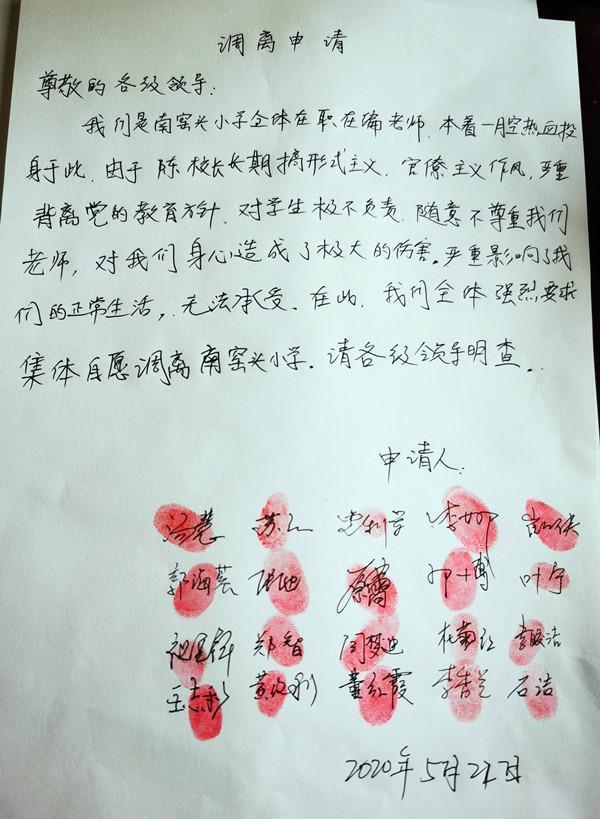 调离申请
尊敬的各级领导:
我们是南窑头小学全体在职在编老师.本着一腔热血投
身于此.由于陈校长长期搞形式主义.官僚主义作风,严重
背离党的教育方针.对学生极不负责.随意不尊重我们
老师,对我们身心造成了极大的伤害。严重影响了我
们的正常生活,无法承受.在此.我们全体强烈要求
集体自愿调离南窑头小学.请各级领导明查.
申请人:
苏红 李娜
郭海芸 原蕾 叶宁
郑智 闫梦迪 杜菊红
王志彩 董红霞 李春兰 石洁
2020年5月21日